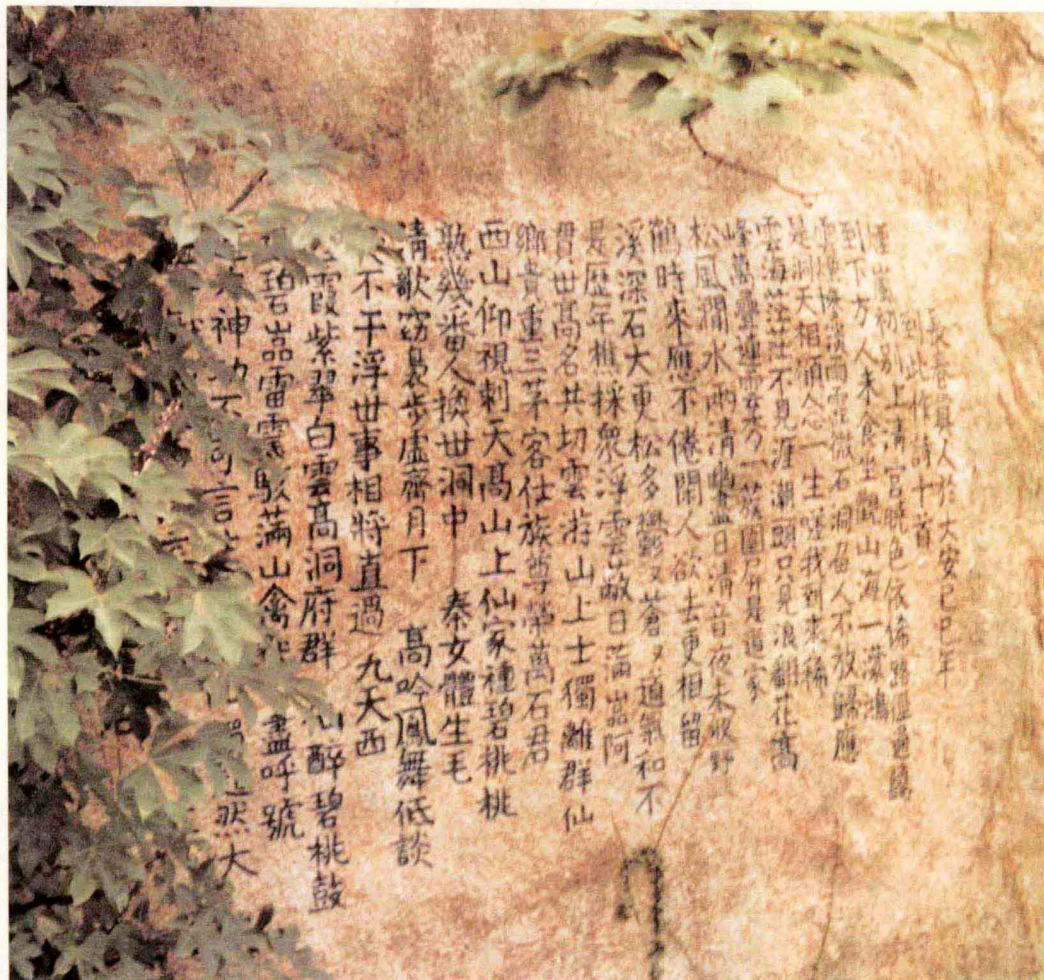 長春真人於大安己巳年
到此作詩十首
煙嵐初別上清宮曉色依俙路徑通纔
到下方人未食坐觀山海一濛鴻
雲煙慘淡雨霏微石洞留人不放歸應
是洞天相顧念一生嗟我到來稀
雲海茫茫不見涯潮頭只見浪翻花高
峰萬疊連雲秀一簇圍屏是道家
松風澗水兩清幽盡日清音夜未收野
鶴時來應不倦閑人欲去更相留
溪深石大更松多鬱又蒼又道氣和不
是歷年樵採眾浮雲蔽日滿嵓阿
貫世高名共切雲游山上士獨離群仙
鄉貴重三茅客仕族尊榮萬石君
西山仰視刺天高山上仙家種碧桃桃
熟幾番人換世洞中 秦女體生毛
清歌窈裊步虛齋月下 高吟鳳舞低談
不干浮世事相將直過 九天西
霞紫翠白雲高洞府群 仙醉碧桃鼓
碧嵓雷震駭滿山禽 盡呼號
神功不可言 然大